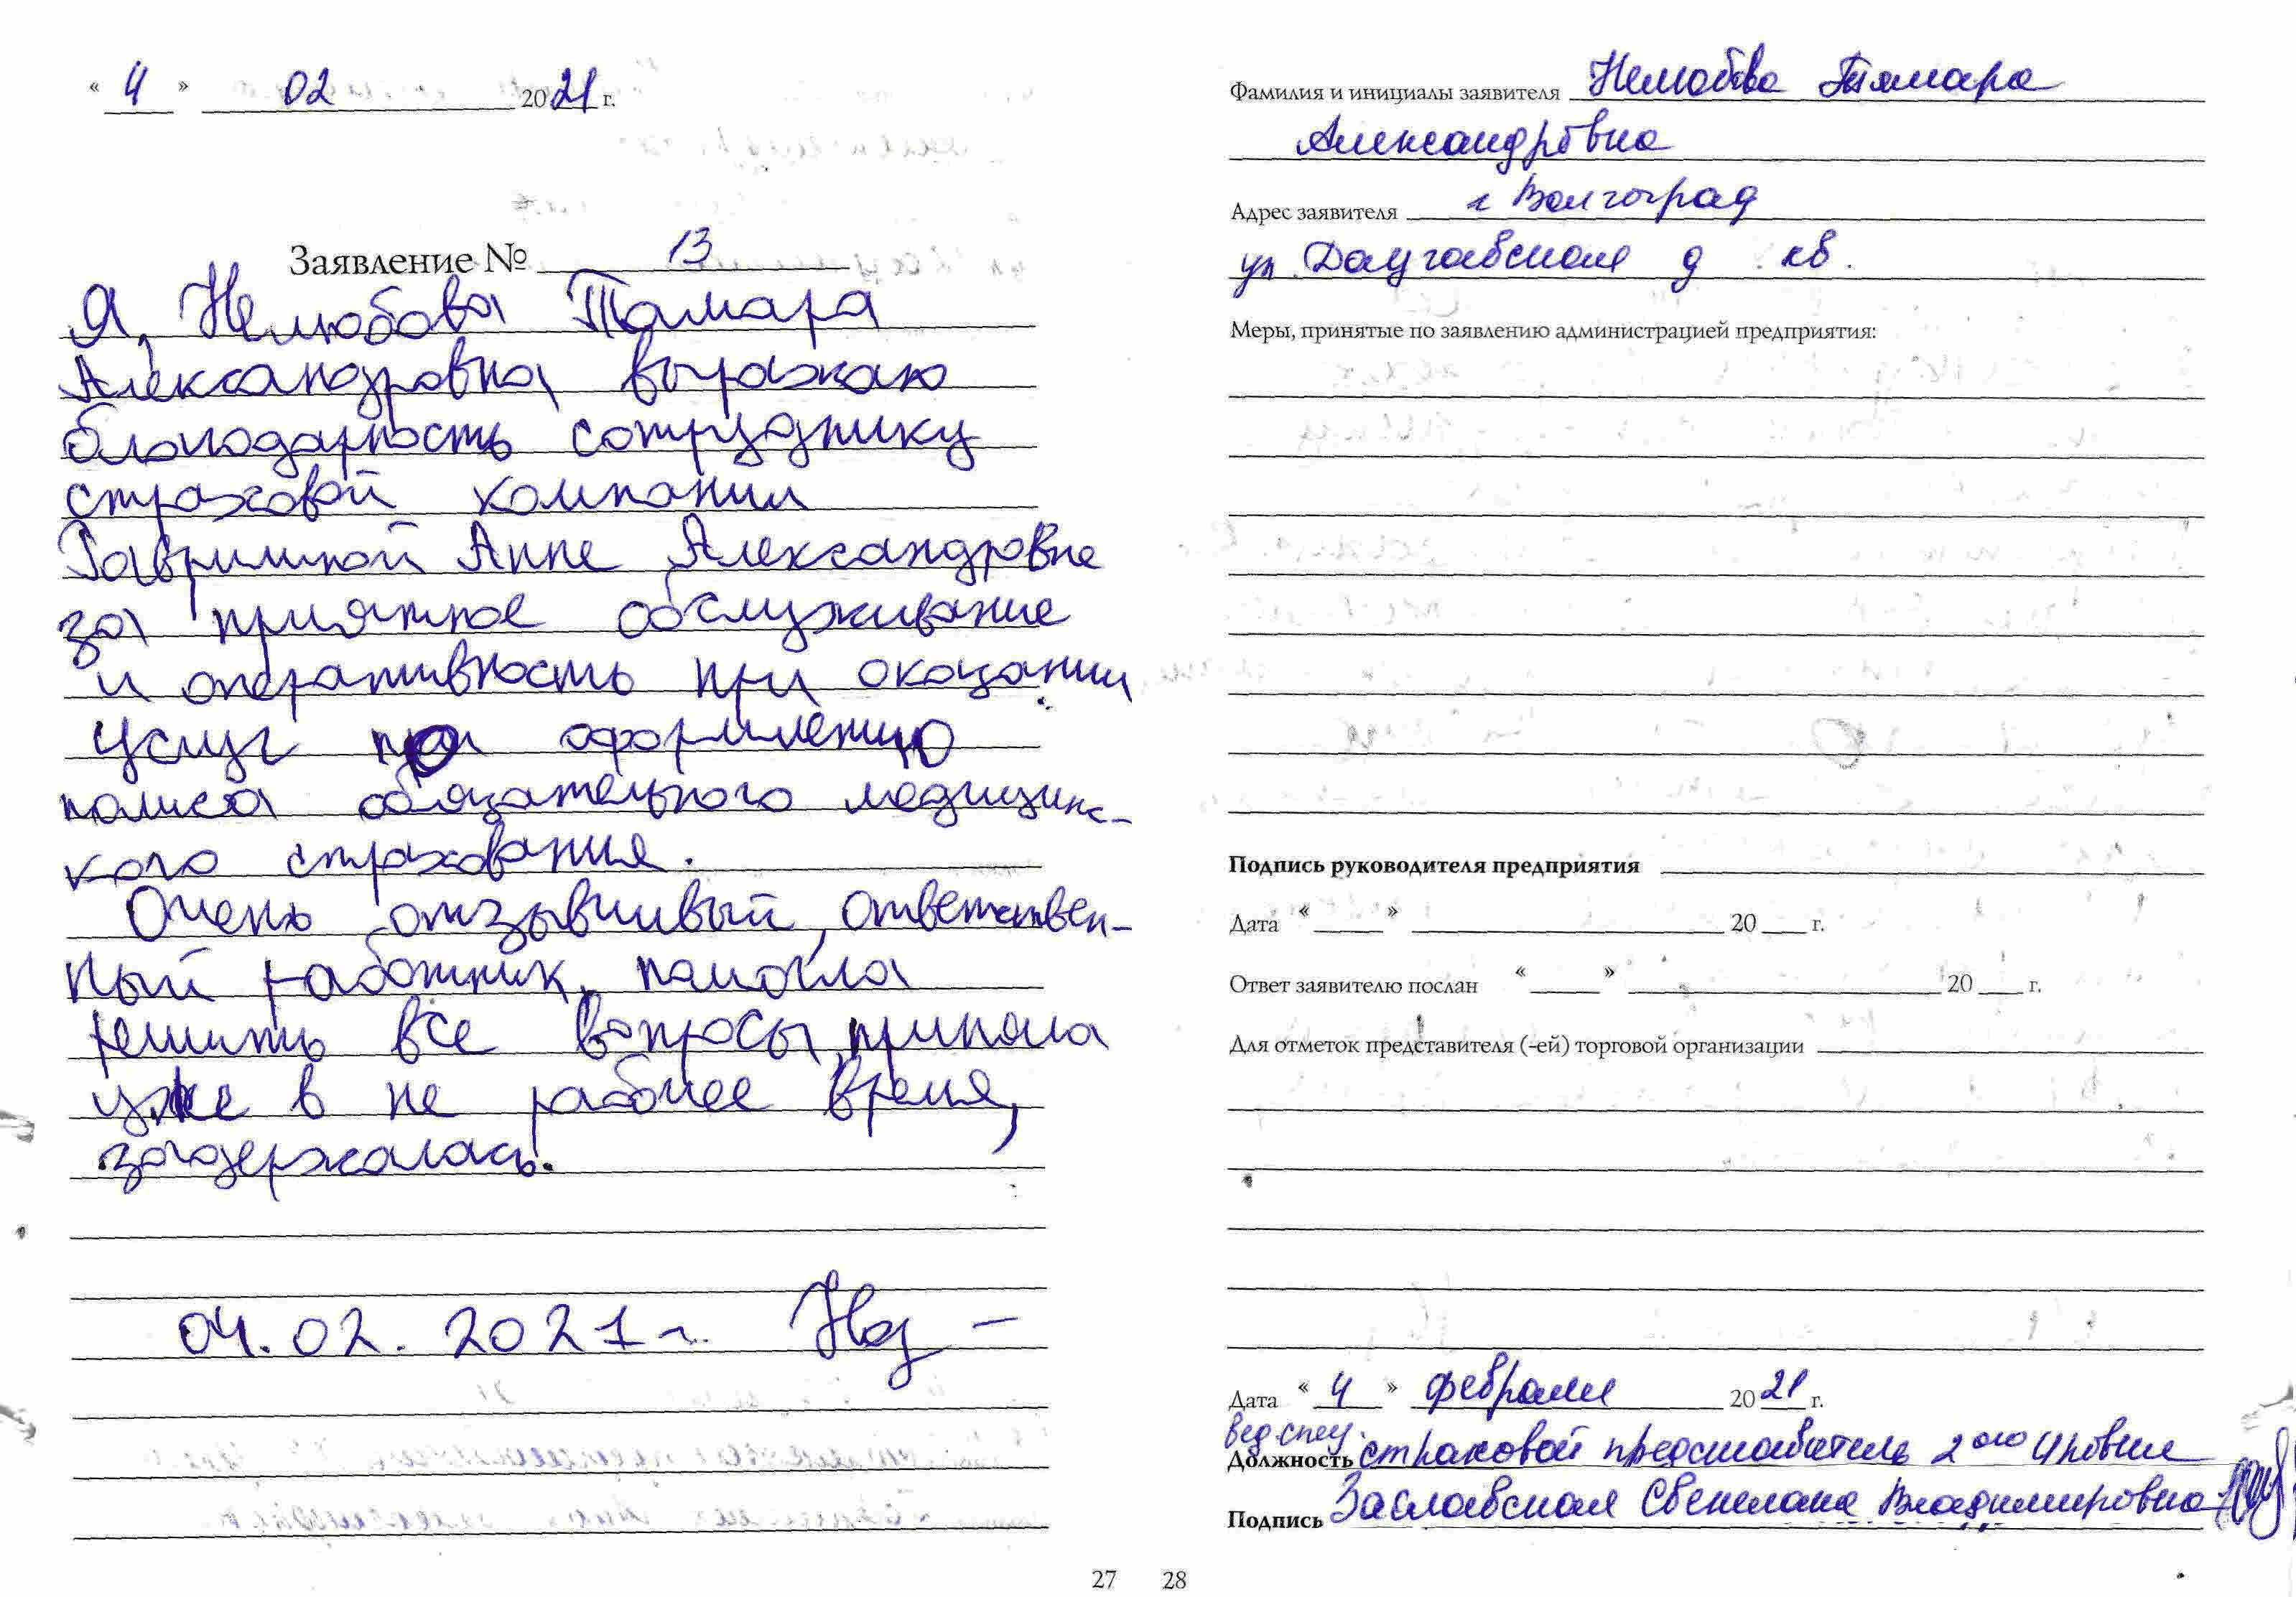 « 4 » 02 2021 г.
Заявление № 13
Я, Нелюбова Тамара
Александровна выражаю
благодарность сотруднику
страховой компании
Гавришной Анне Александровне
за приятное обслуживание
и оперативность при оказании
услуг по оформлению
полиса обязательного медицинс-
кого страхования.
Очень отзывчивый, ответствен-
ный работник, помогла
решить все вопросы, приняла
уже в не рабочее время,
задержалась.
04.02.2021 г.
27
Фамилия и инициалы заявителя Нелюбова Тамара
Александровна
Адрес заявителя г Волгоград
ул. Даугавская д кв.
Меры, принятые по заявлению администрацией предприятия:
Подпись руководителя предприятия
Дата « » 20 г.
Ответ заявителю послан « » 20 г.
Для отметок представителя (-ей) торговой организации
Дата « 4 » февраля 2021 г.
вед. спец.
Должность страховой представитель 2ого уровня
Подпись Заславская Светлана Владимировна
28